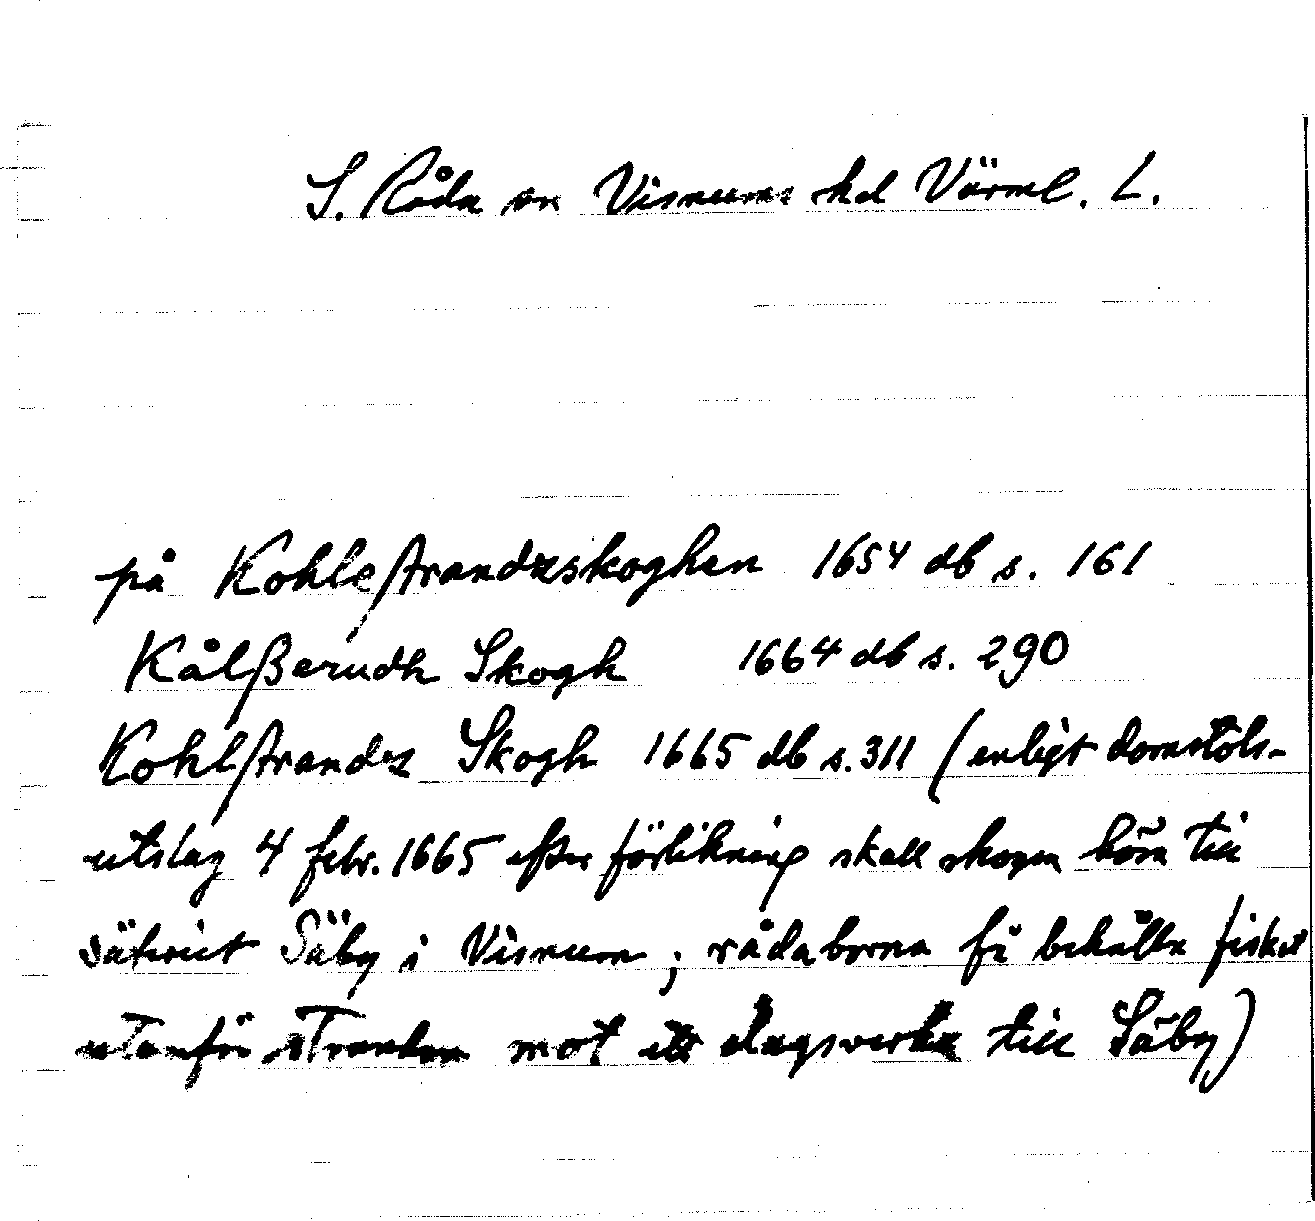 S. Råda sn Visnums hd Värml. L.
på Kohlestrandzskoghen 1654 db s. 161
Kålßerudh Skogh 1664 db s. 290
Kohlstrandz Skogh 1665 db s. 311 (enligt domstols-
utslag 4 febr. 1665 efter förlikning skall skogen höra till
säteriet Säby i Visnum; rådaborna få behålla fisket
utanför stranden mot ett dagsverke till Säby)